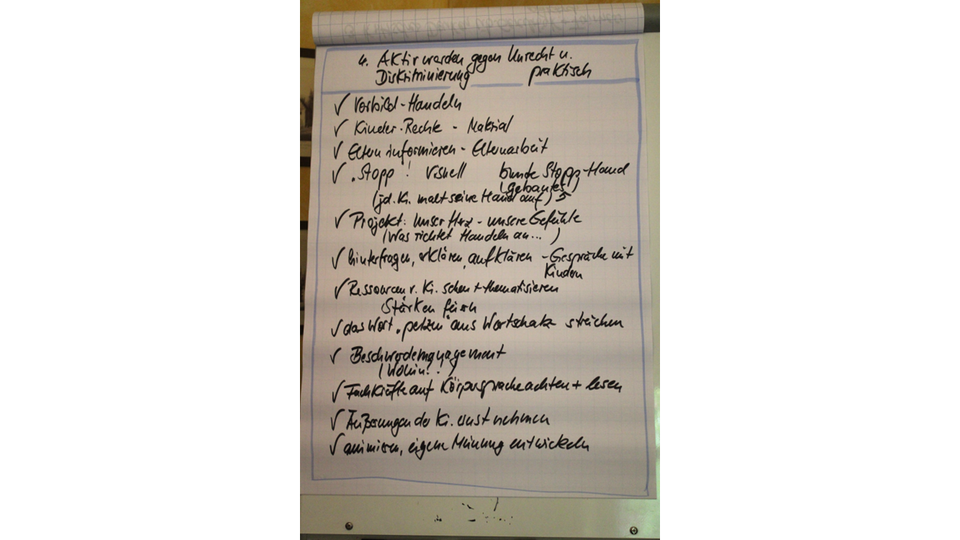 4. Aktiv werden gegen Unrecht u.
Diskriminierung praktisch
✓ Vorbild-Handeln
✓ Kinder-Rechte - Material
✓ Eltern informieren - Elternarbeit
✓ "Stopp! visuell bunte Stopp-Hand
(jd. Ki. malt seine Hand auf)
✓ Projekt: Unser Herz - unsere Gefühle
(Was richtet Handeln an...)
✓ hinterfragen, erklären, aufklären - Gespräche mit
Kindern
✓ Ressourcen v. Ki. sehen + thematisieren
Stärken feiern
✓ das Wort "petzen" aus Wortschatz streichen
✓ Beschwerdemanagement
(Wohin!?)
✓ Fachkräfte auf Körpersprache achten + lesen
✓ Äußerungen der Ki. ernst nehmen
✓ animieren, eigene Meinung entwickeln